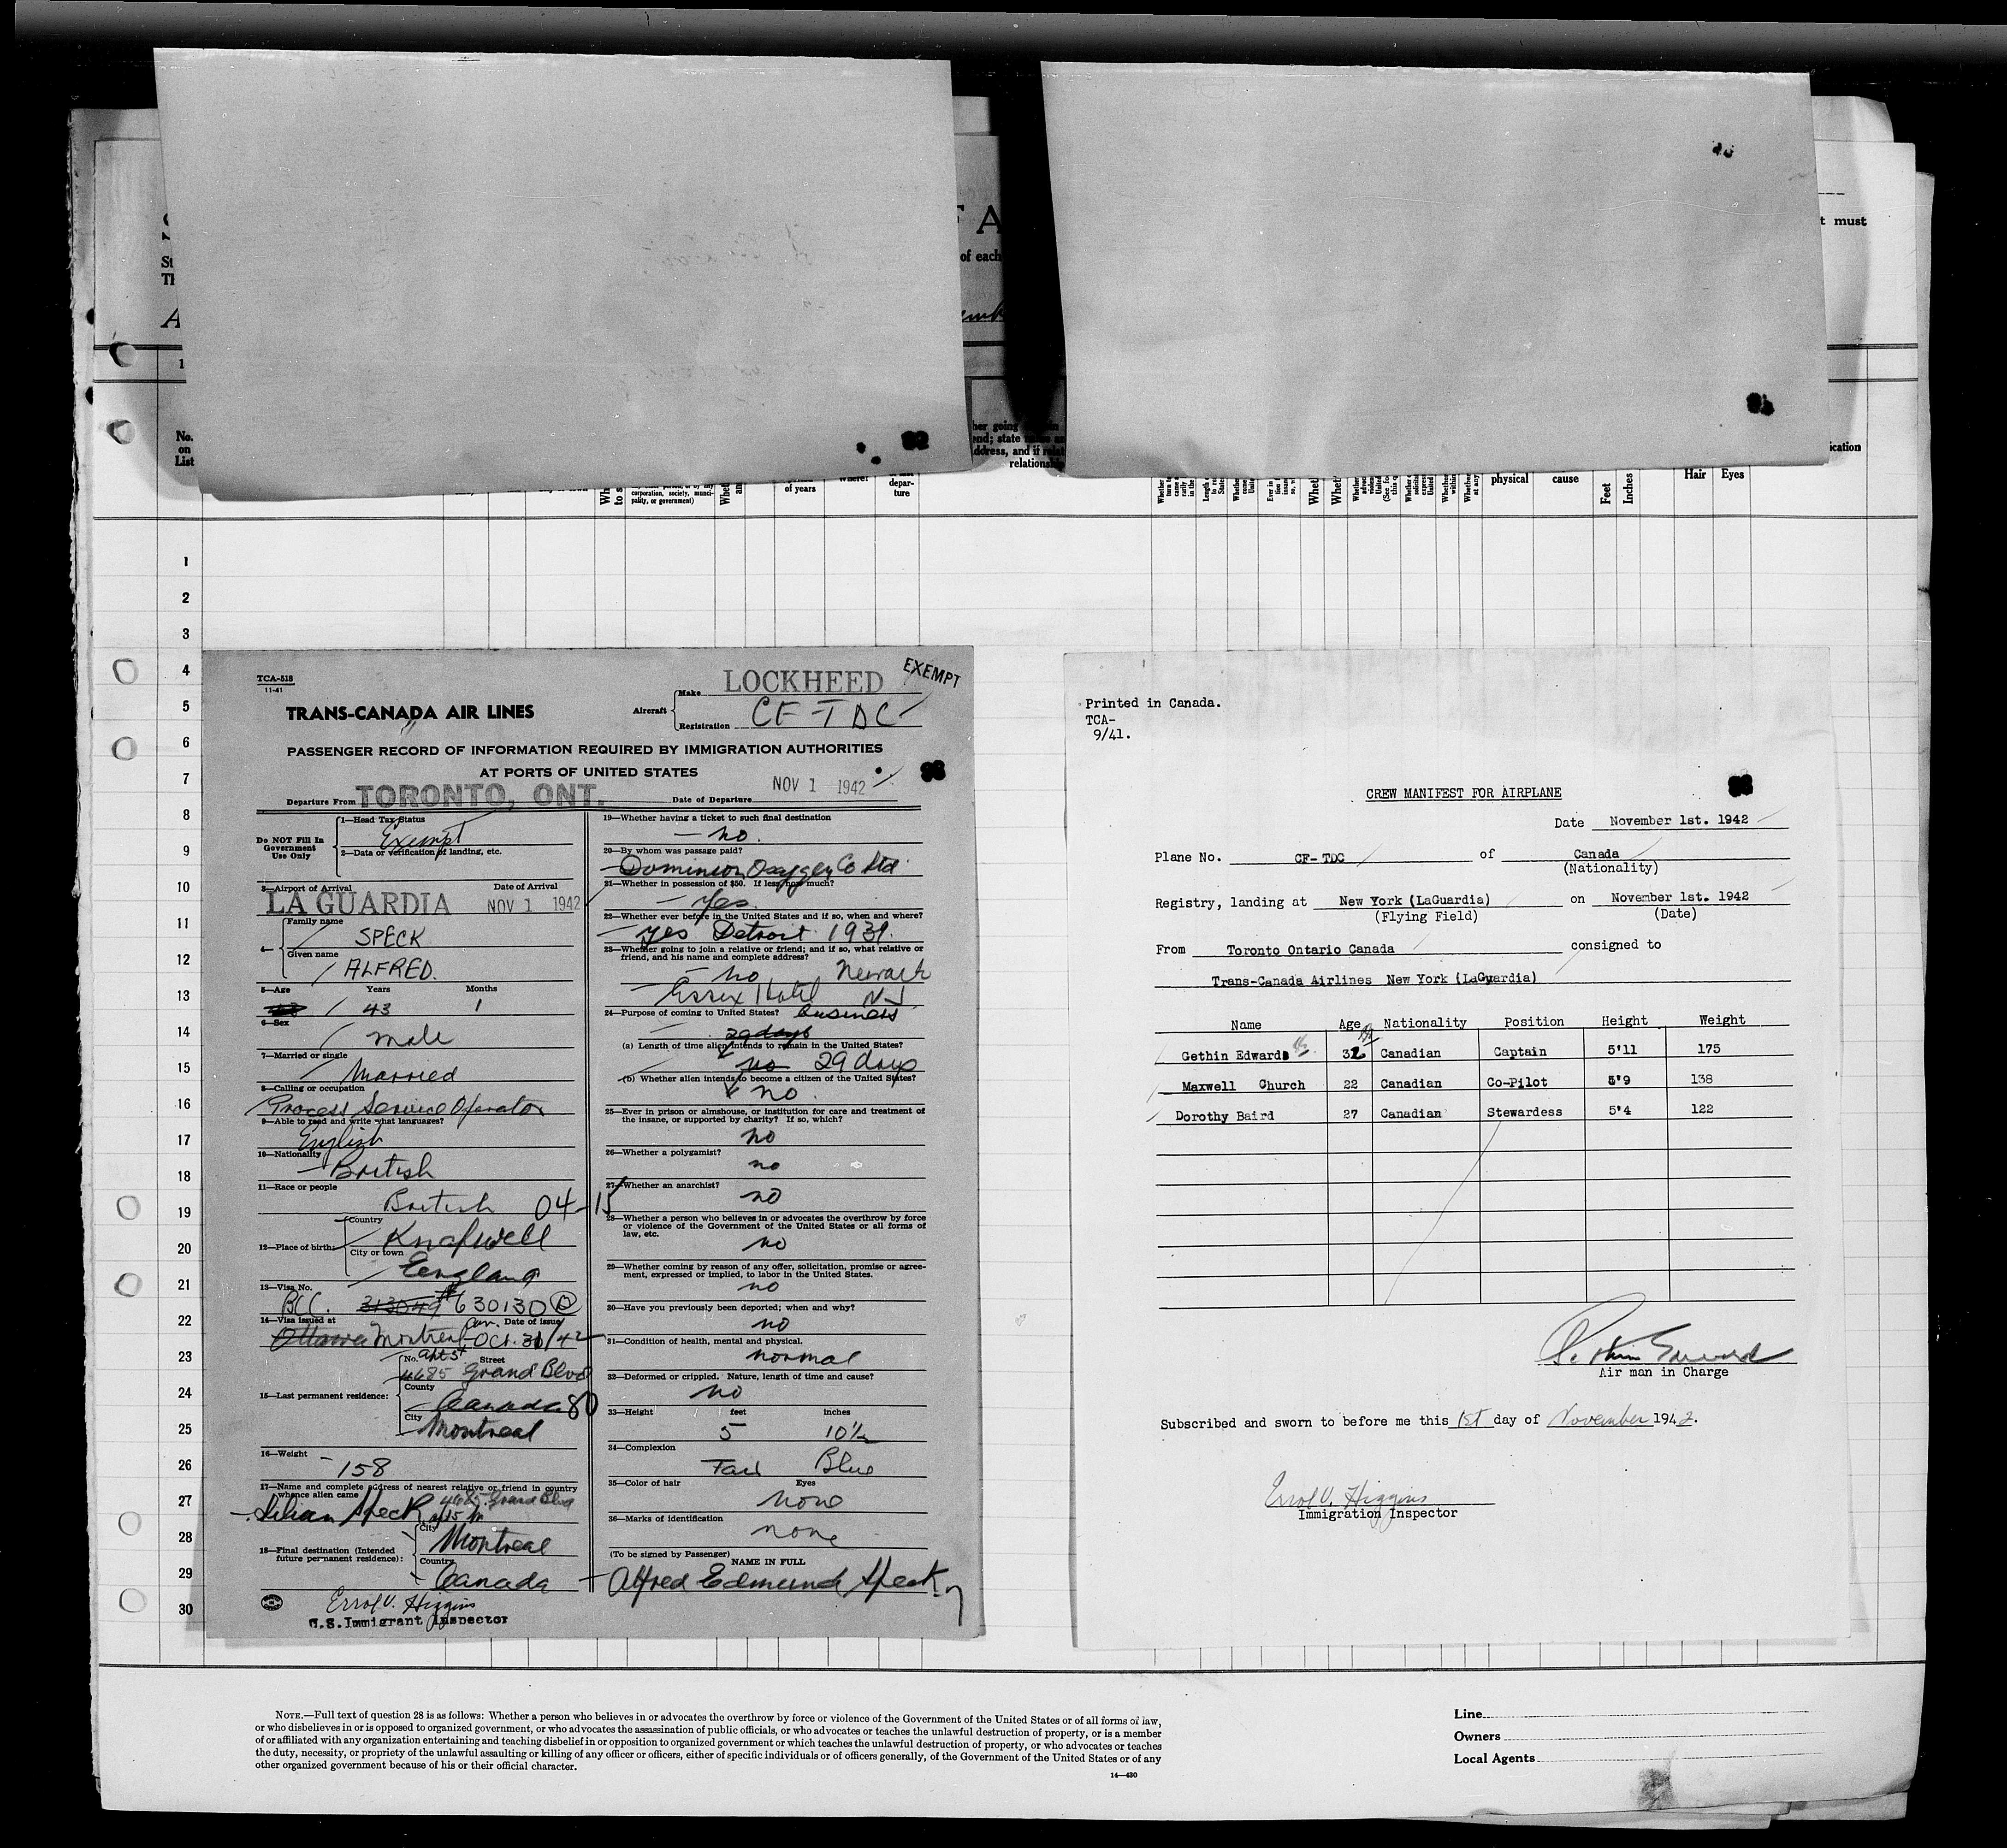 F A
of each
t must
St
Th
A
1
No.
on
List
her going
end; state
ddress, and if relat
relationship
ication
corporation, society, munci-
pality, or government)
of years
where?
depar-
ture
physical
cause
Feet
Inches
Hair
Eyes
1
2
3
4
5
6
7
8
9
10
11
12
13
14
15
16
17
18
19
20
21
22
23
24
25
26
27
28
29
30
TCA-518
11-41
LOCKHEED
EXEMPT
Make
TRANS-CANADA AIR LINES
Aircraft
Registration CF-TDC
PASSENGER RECORD OF INFORMATION REQUIRED BY IMMIGRATION AUTHORITIES
AT PORTS OF UNITED STATES
98
Departure From TORONTO, ONT.
Date of Departure NOV 1 1942
Do NOT Fill In
Government
Use Only
1—Head Tax Status
Exempt
2—Data or verification of landing, etc.
3—Airport of Arrival
Date of Arrival
LA GUARDIA NOV 1 1942
4—
Family name
SPECK
Given name
ALFRED.
5—Age Years Months
43 1
6—Sex
Male
7—Married or single
Married
8—Calling or occupation
Process Service Operator
9—Able to read and write what languages?
English
10—Nationality
British
11—Race or people
British 04-15
12—Place of birth:
Country
Knapwell
City or town
England
13—Visa No.
BCC. 313049 #630130
14—Visa issued at
Date of issue
Ottawa Montreal Can. Oct. 31/42
15—Last permanent residence:
No. Apt 5 Street
4685 Grand Blvd
County
Canada 80
City
Montreal
16—Weight
158
17—Name and complete address of nearest relative or friend in country
whence alien came
4685 Grand Blvd
Lilian Speck
18—Final destination (Intended
future permanent residence):
City
Montreal
Country
Canada
Errol V. Higgins
U.S. Immigrant Inspector
19—Whether having a ticket to such final destination
no.
20—By whom was passage paid?
Dominion Oxygen Co Ltd
21—Whether in possession of $50. If less, how much?
Yes
22—Whether ever before in the United States and if so, when and where?
yes Detroit 1939.
23—Whether going to join a relative or friend; and if so, what relative or
friend, and his name and complete address?
no Newark
Essex Hotel NJ
24—Purpose of coming to United States? business
29 days
(a) Length of time alien intends to remain in the United States?
no 29 days
(b) Whether alien intends to become a citizen of the United States?
no.
25—Ever in prison or almshouse, or institution for care and treatment of
the insane, or supported by charity? If so, which?
no
26—Whether a polygamist?
no
27—Whether an anarchist?
no
28—Whether a person who believes in or advocates the overthrow by force
or violence of the Government of the United States or all forms of
law, etc.
no
29—Whether coming by reason of any offer, solicitation, promise or agree-
ment, expressed or implied, to labor in the United States.
no
30—Have you previously been deported; when and why?
no
31—Condition of health, mental and physical.
normal
32—Deformed or crippled. Nature, length of time and cause?
no
33—Height feet inches
5 10½
34—Complexion
Fair Blue
35—Color of hair Eyes
none
36—Marks of identification
none
(To be signed by Passenger)
NAME IN FULL
Alfred Edmund Speck
Printed in Canada.
TCA-
9/41.
CREW MANIFEST FOR AIRPLANE
Date November 1st. 1942
Plane No. CF-TDC of Canada
(Nationality)
Registry, landing at New York (LaGuardia) on November 1st. 1942
(Flying Field) (Date)
From Toronto Ontario Canada consigned to
Trans-Canada Airlines New York (LaGuardia)
Name Age Nationality Position Height Weight
Gethin Edwards 32 Canadian Captain 5'11 175
Maxwell Church 22 Canadian Co-Pilot 5'9 138
Dorothy Baird 27 Canadian Stewardess 5'4 122
Air man in Charge
Subscribed and sworn to before me this 1st day of November 1942.
Errol V. Higgins
Immigration Inspector
NOTE.—Full text of question 28 is as follows: Whether a person who believes in or advocates the overthrow by force or violence of the Government of the United States or of all forms of law,
or who disbelieves in or is opposed to organized government, or who advocates the assassination of public officials, or who advocates or teaches the unlawful destruction of property, or is a member
of or affiliated with any organization entertaining and teaching disbelief in or opposition to organized government or which teaches the unlawful destruction of property, or who advocates or teaches
the duty, necessity, or propriety of the unlawful assaulting or killing of any officer or officers, either of specific individuals or of officers generally, of the Government of the United States or of any
other organized government because of his or their official character.
14—430
Line
Owners
Local Agents